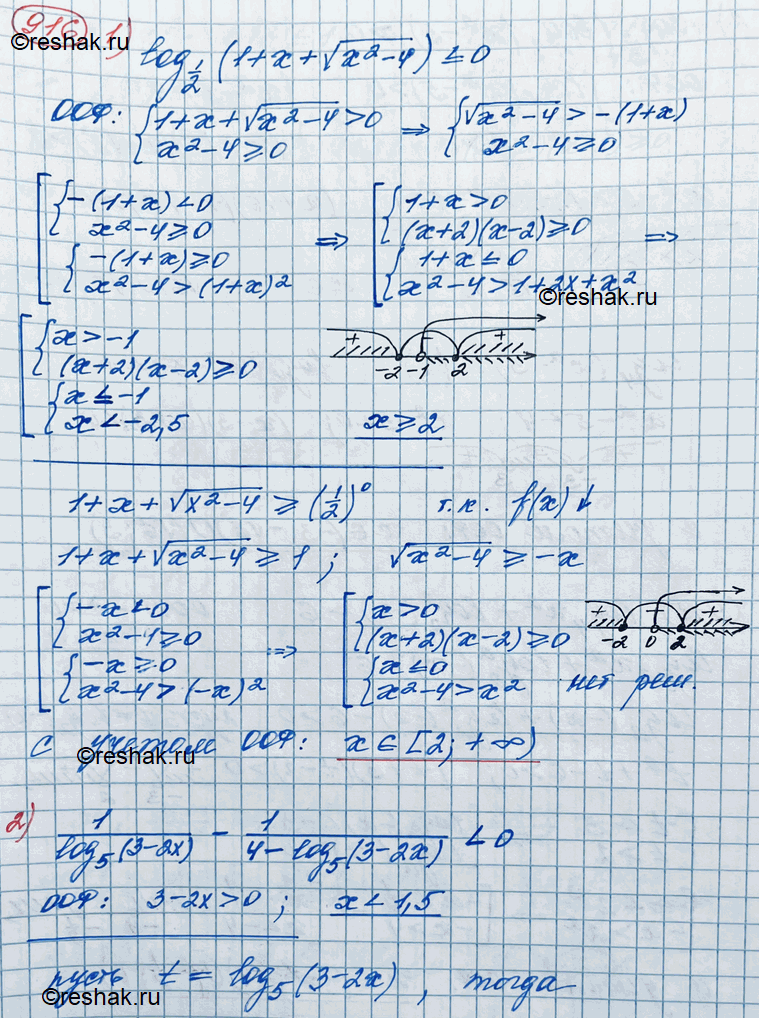 916 1)
©reshak.ru
log_{1/2} (1+x+√(x²-4)) ≤ 0
ООФ: { 1+x+√(x²-4) > 0 ⇒ { √(x²-4) > -(1+x)
x²-4 ≥ 0 x²-4 ≥ 0
[ { -(1+x) < 0 [ { 1+x > 0
x²-4 ≥ 0 ⇒ (x+2)(x-2) ≥ 0 ⇒
{ -(1+x) ≥ 0 { 1+x ≤ 0
x²-4 > (1+x)² x²-4 > 1+2x+x²
©reshak.ru
[ { x > -1 + - +
(x+2)(x-2) ≥ 0 -2 -1 2
{ x ≤ -1
x < -2,5 x ≥ 2
1+x+√(x²-4) ≥ (1/2)⁰ т.к. f(x)↓
1+x+√(x²-4) ≥ 1 ; √(x²-4) ≥ -x
[ { -x < 0 [ { x > 0 + - +
x²-4 ≥ 0 ⇒ (x+2)(x-2) ≥ 0 -2 0 2
{ -x ≥ 0 { x ≤ 0
x²-4 > (-x)² x²-4 > x² нет реш.
с учетом ООФ: x ∈ [2; +∞)
©reshak.ru
2) 1/(log₅(3-2x)) - 1/(4-log₅(3-2x)) < 0
ООФ: 3-2x > 0 ; x < 1,5
пусть t = log₅(3-2x) , тогда
©reshak.ru